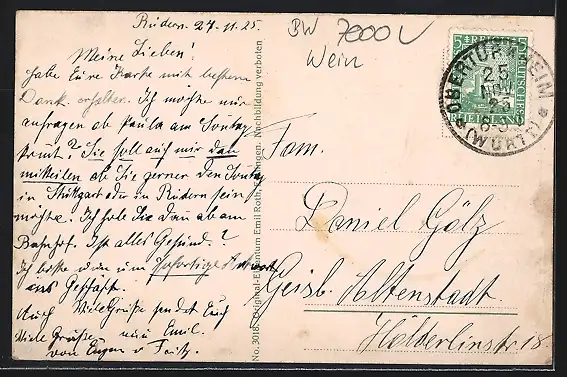 Rüdern. 27.11.25.
Meine Lieben!
Habe Eure Karte mit bestem
Dank erhalten. Ich möchte nur
anfragen ob Paula am Sonntag
kommt? Sie soll auch mir dan
mitteilen ob Sie gerner den Sonntag
in Stuttgart oder in Rüdern sein
möchte. Ich hole Sie dan ab am
Bahnhof. Ist alles Gesund?
Ich bitte um sofortige Antwort
ins Geschäft.
Auch Viele Grüße sendet Euch
Viele Grüße Emil.
von Eugen u. Fritz.
BW 7000 L
Wein
No. 3018. Original-Eigentum Emil Roth, Nachbildung verboten
5 DEUTSCHES REICH 5
RHEINLAND
OBERTÜRKHEIM
25
NOV
25
(WÜRTT)
Fam.
Daniel Gölz
Geisl. Altenstadt
Hölderlinstr 18.